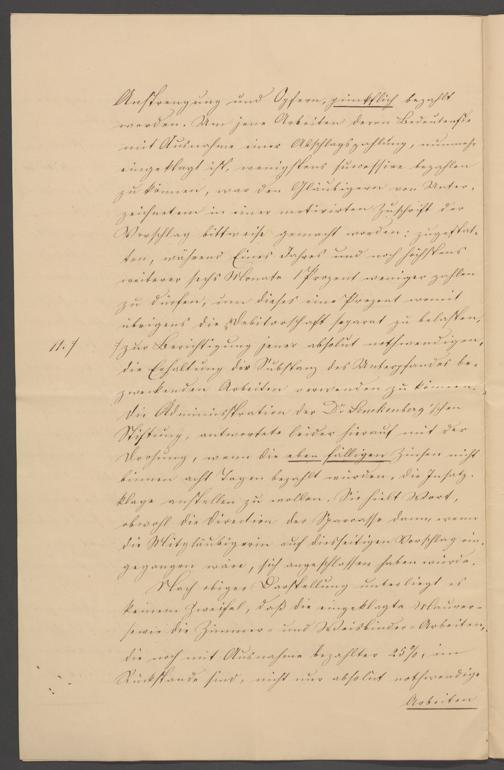 Anstrengung und Opfern, pünktlich bezahlt
worden. Um jene Arbeiten deren Bedeutendste
mit Ausnahme einer Abschlagszahlung, nunmehr
eingeklagt ist, wenigstens successive bezahlen
zu können, war den Gläubigern von Unter-
zeichnetem in einer motivirten Zuschrift der
Vorschlag bittweise gemacht worden: zugestat-
ten, während Eines Jahres und noch höchstens
weiterer sechs Monate 1 Prozent weniger zahlen
zu dürfen, um dieses eine Prozent womit
übrigens die Debitorschaft separat zu belasten,
zur Berichtigung jener absolut nothwendigen,
die Erhaltung der Substanz des Unterpfandes be-
zweckenden Arbeiten verwenden zu können.
Die Administration der Dr. Senckenberg'schen
Stiftung, antwortete leider hierauf mit der
Drohung, wenn die eben fälligen Zinsen nicht
binnen acht Tagen bezahlt würden, die Insatz-
klage anstellen zu wollen. Sie hielt Wort,
obwohl die Direction der Sparcasse dann, wenn
die Mitgläubigerin auf diesseitigen Vorschlag ein-
gegangen wäre, sich angeschlossen haben würde.
Nach obiger Darstellung unterliegt es
keinem Zweifel, daß die eingeklagte Maurer-
sowie die Zimmer- und Weisbinder-Arbeiten,
die noch mit Ausnahme bezahlter 25%, im
Rückstande sind, nicht nur absolut nothwendige
Arbeiten